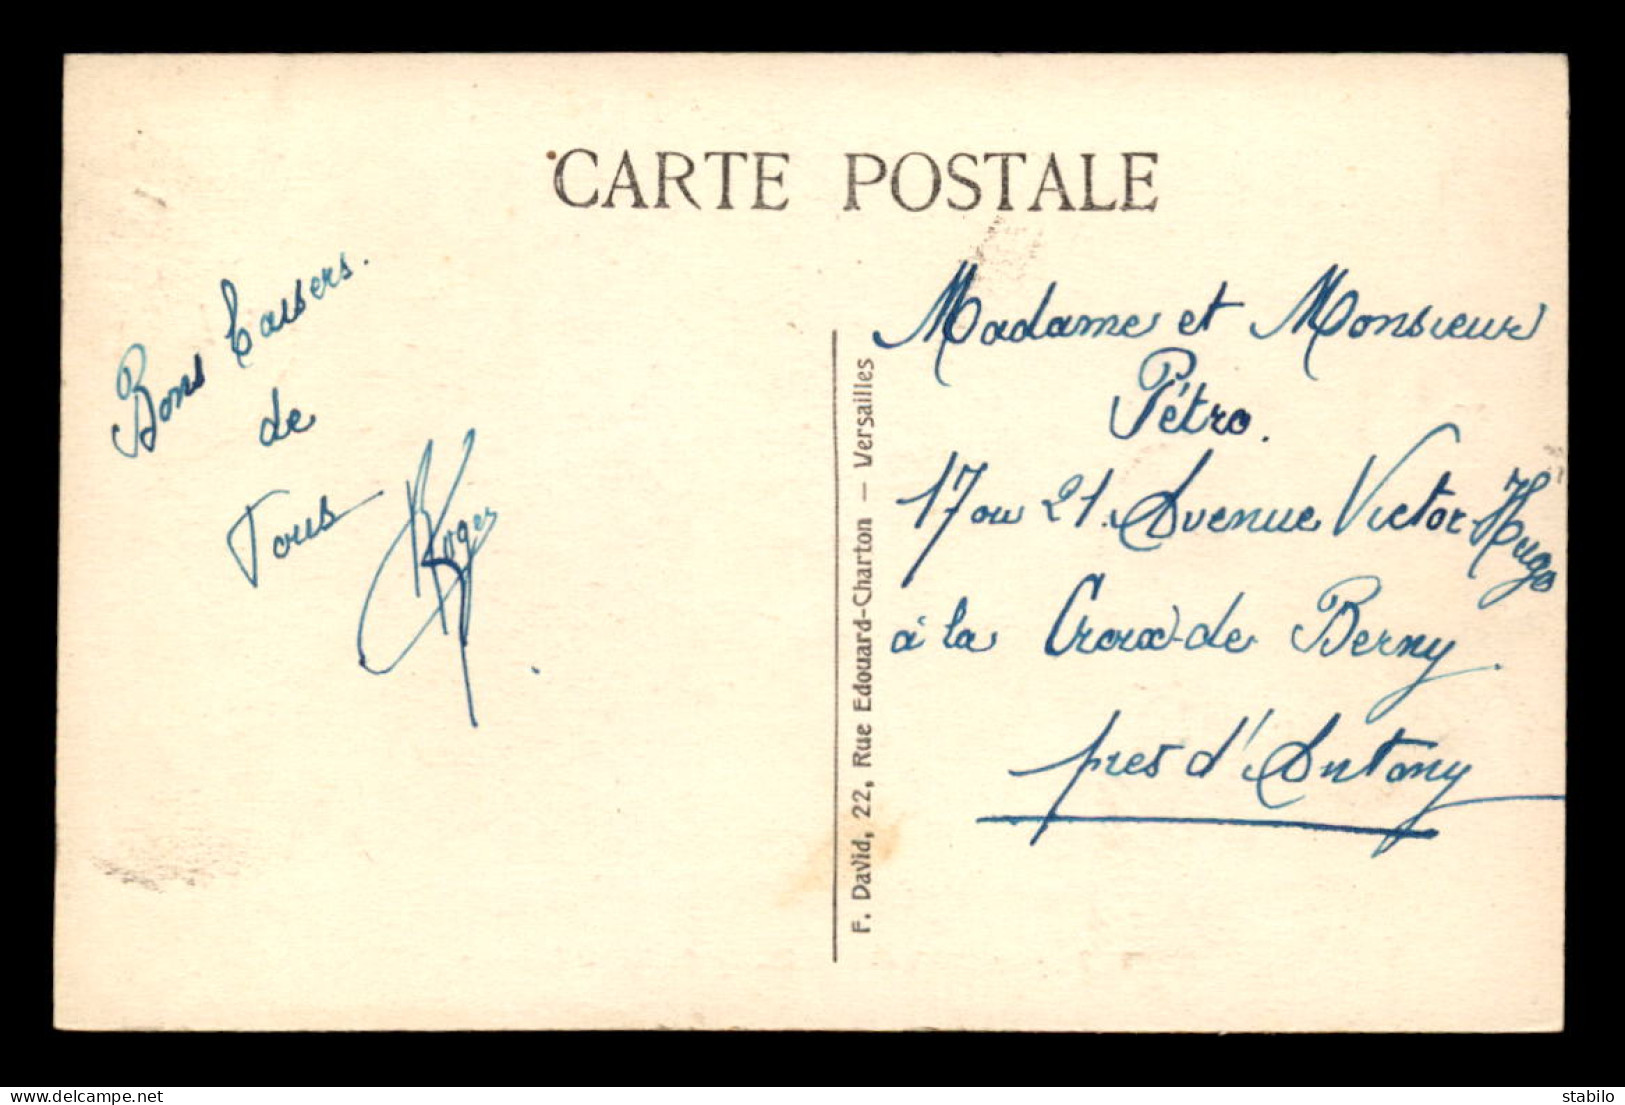 CARTE POSTALE
Bons baisers.
de
Tous
Roger
F. David, 22, Rue Edouard-Charton — Versailles
Madame et Monsieur
Pétro.
17 ou 21. Avenue Victor-Hugo
à la Croix-de Berny.
près d'Antony
delcampe.net
stabilo